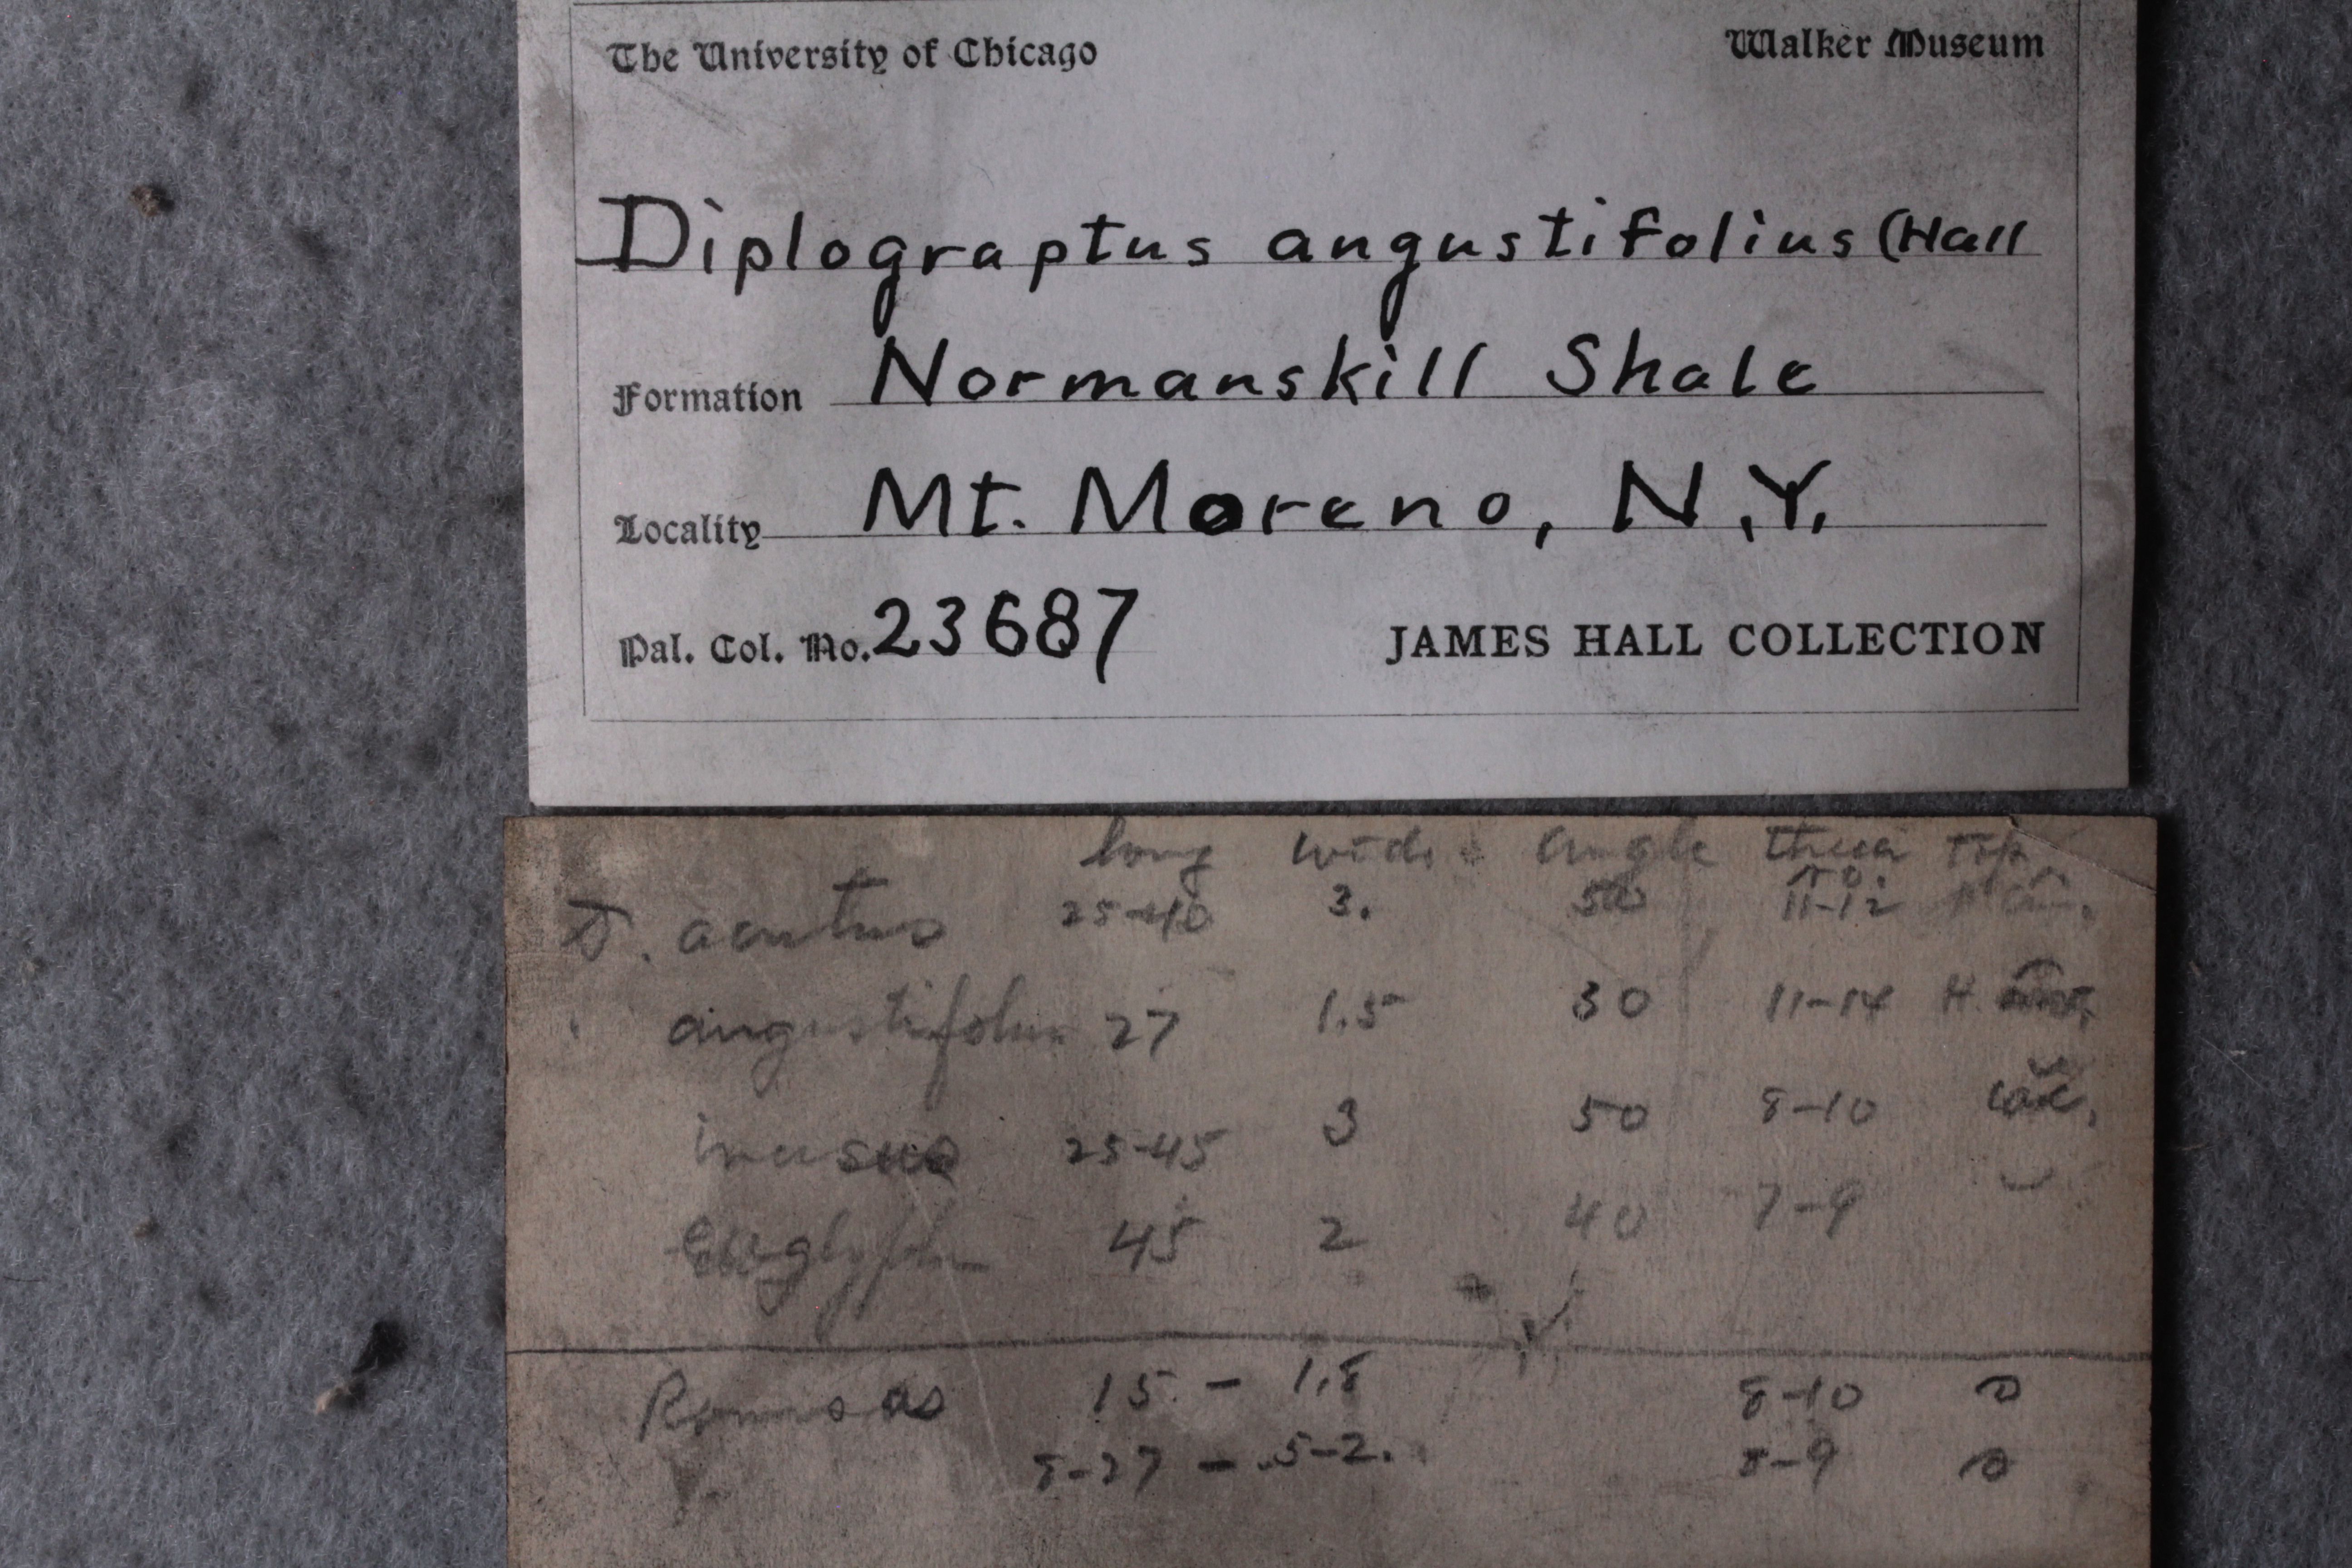 The University of Chicago Walker Museum
Diplograptus angustifolius (Hall
Formation Normanskill Shale
Locality Mt. Moreno, N.Y.
Pal. Col. No. 23687 JAMES HALL COLLECTION
long wide angle top
no.
D. acutus 25-40 3. 50 11-12
angustifolius 27 1.5 30 11-14 H.
incisus 25-45 3 50 8-10
euglyphus 45 2 40 7-9
15 - 1.8 8-10
8-27 - .5-2. 8-9